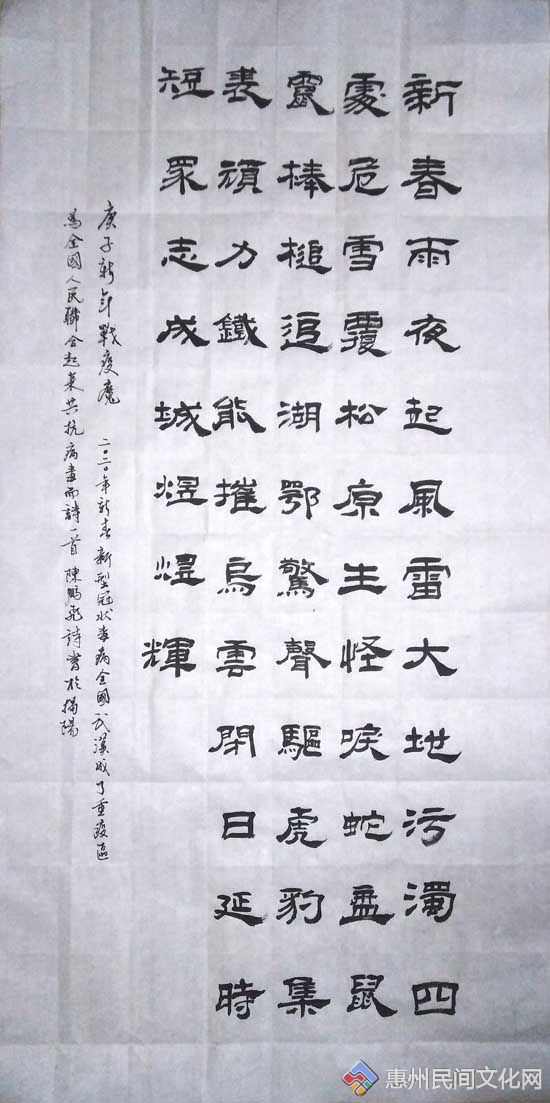 新春雨夜起風雷大地污濁四
處危雪覆松原生怪唳蛇盃鼠
竄棒槌追湖鄂驚聲驅虎豹集
頑力鐵能摧烏雲閉日延時
短眾志成城煜煜輝
庚子新年戰疫魔 二〇二〇年新春新型冠狀毒病全國武漢成了重疫區
為全國人民聯合起來共抗病毒而詩一首 陳鵬飛詩書於揭陽
惠州民间文化网